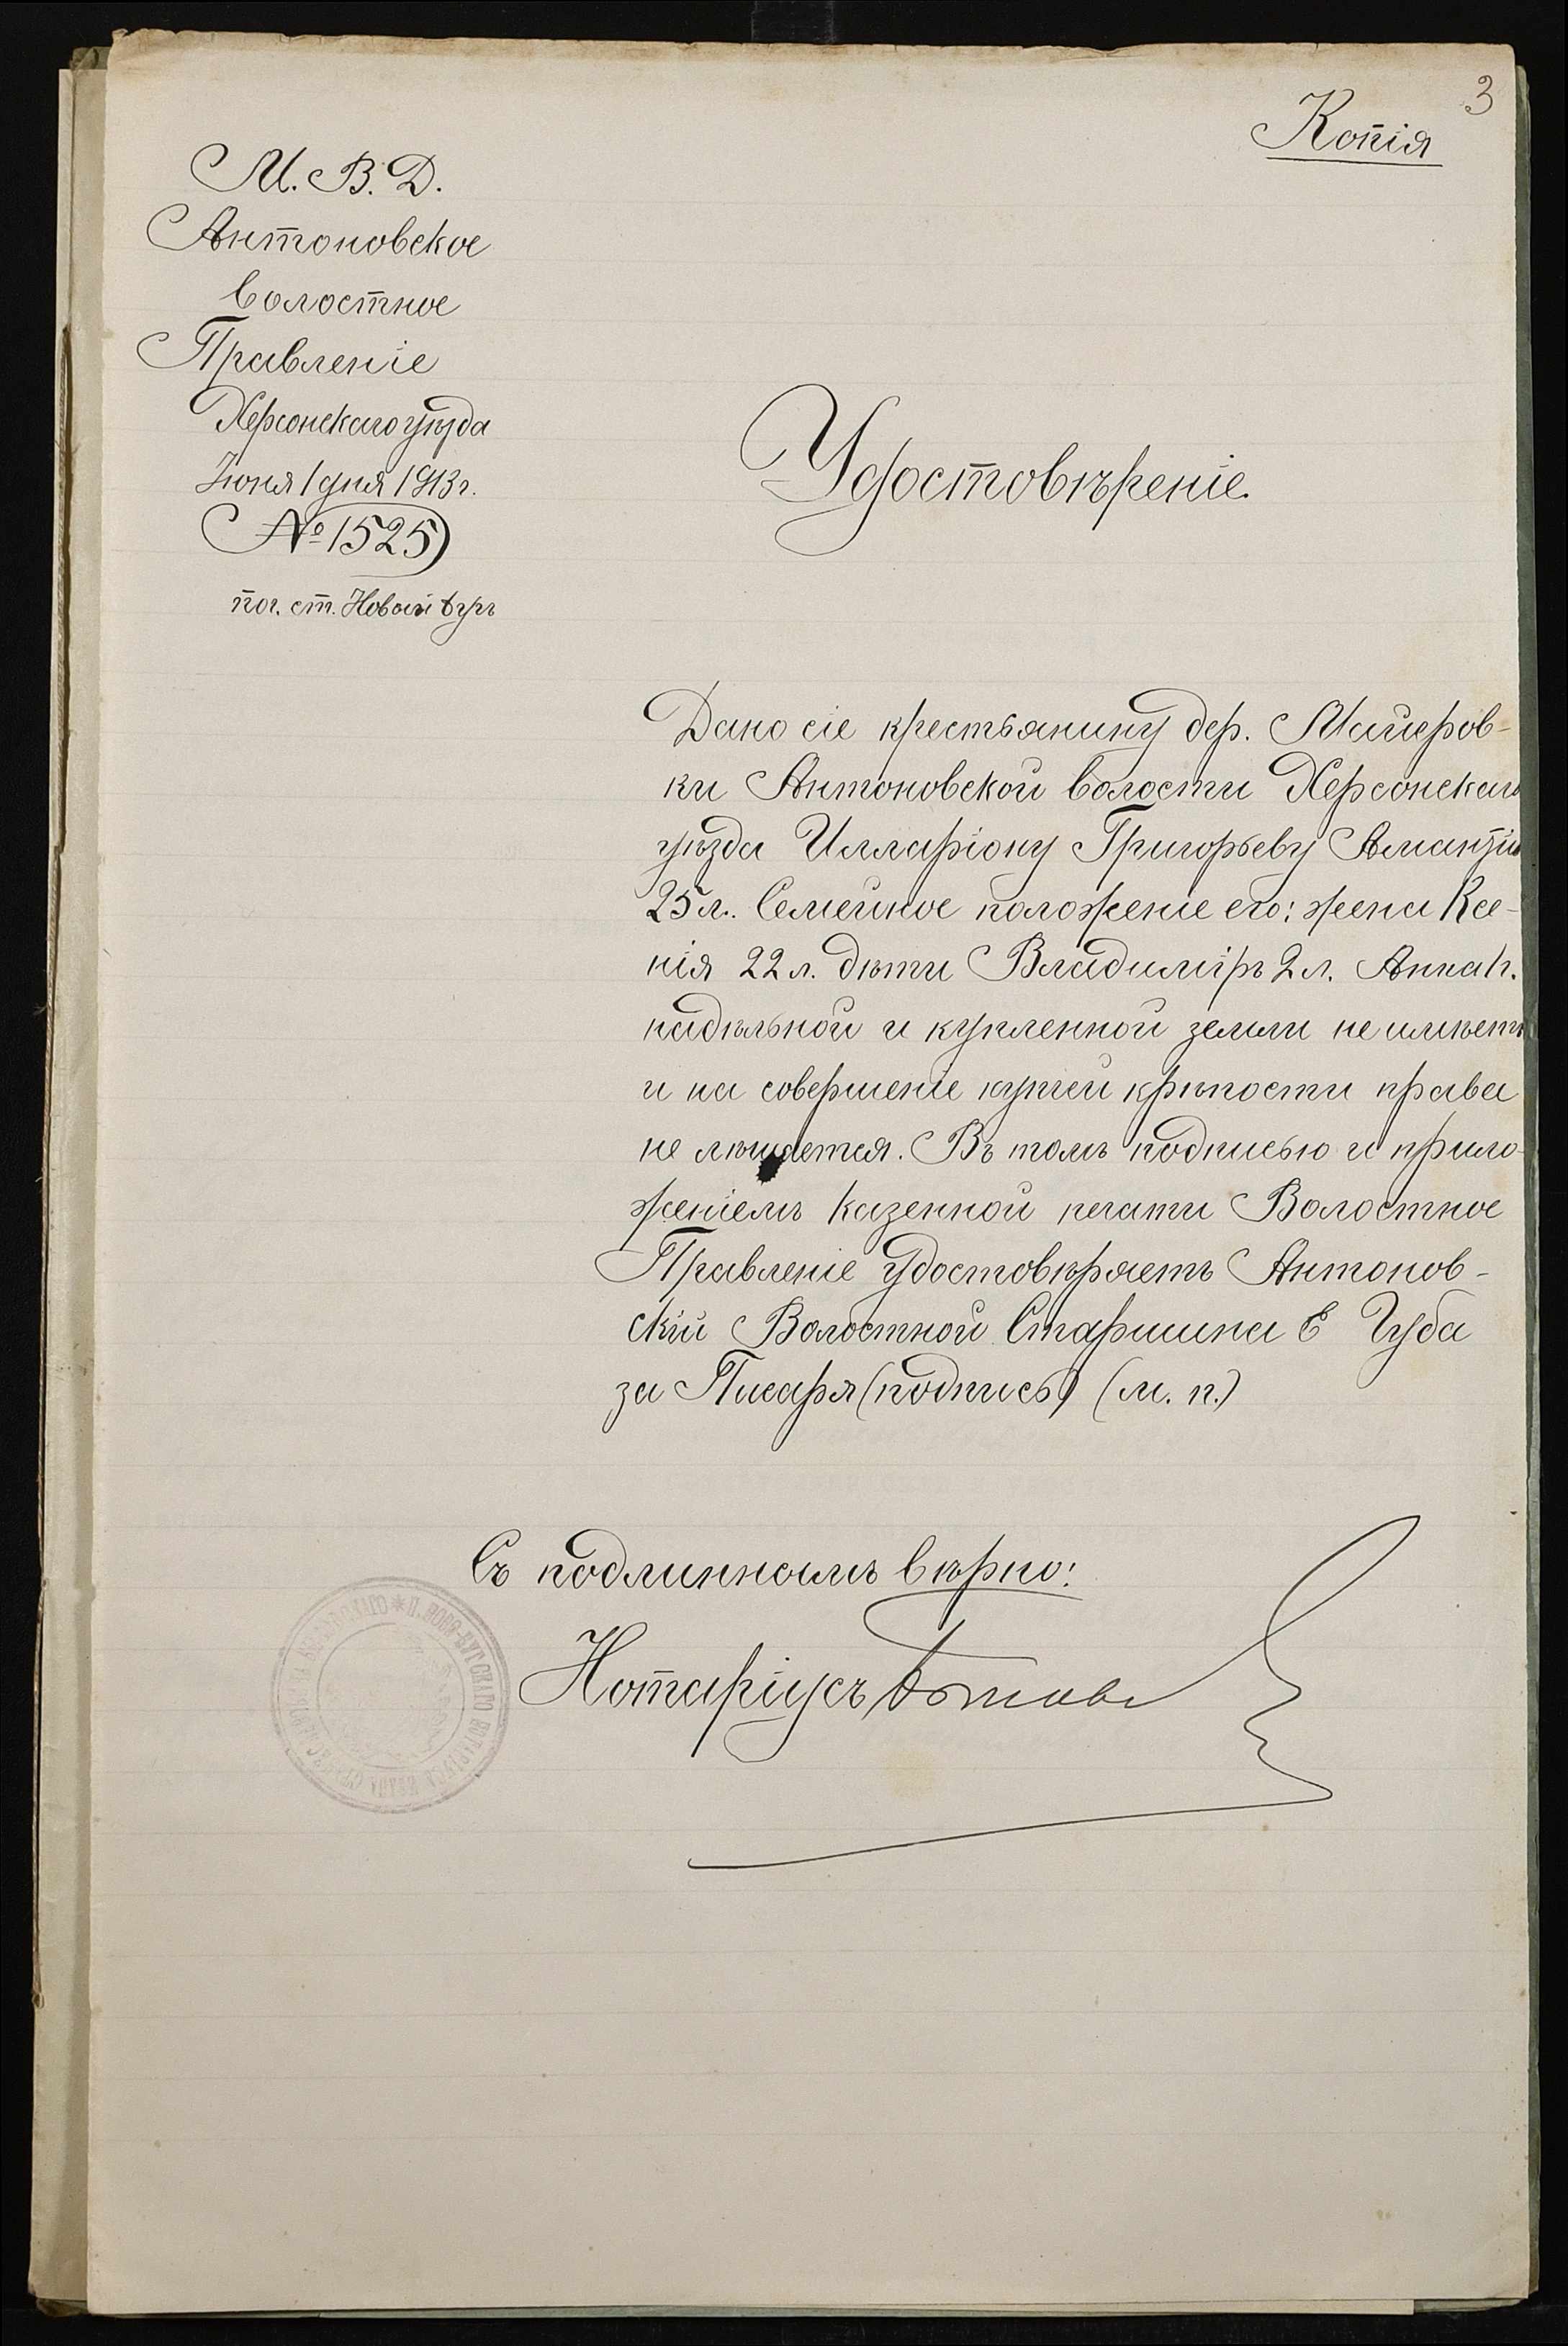 3
Копія
М. В. Д.
Антоновское
волостное
Правленіе
Херсонскаго уѣзда
Іюня 1 дня 1913 г.
№ 1525
поч. ст. Новый Бугъ
Удостовѣреніе.
Дано сіе крестьянину дер. Майеров-
ки Антоновской волости Херсонскаго
уѣзда Илларіону Григорьеву
25 л. Семейное положеніе его: жена Ксе-
нія 22 л. дѣти Владиміръ 2 л. Анна 1 г.
надѣльной и купленной земли не имѣетъ
и на совершеніе купчей крѣпости права
не лишается. Въ томъ подписью и прило-
женіемъ казенной печати Волостное
Правленіе удостовѣряетъ Антонов-
скій Волостной Старшина Е Чуба
за Писаря (подпись) (м. п.)
Съ подлиннымъ вѣрно:
Нотаріусъ